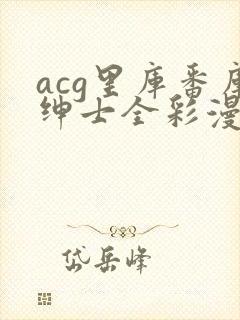 acg里库番库
绅士全彩漫
岱岳峰